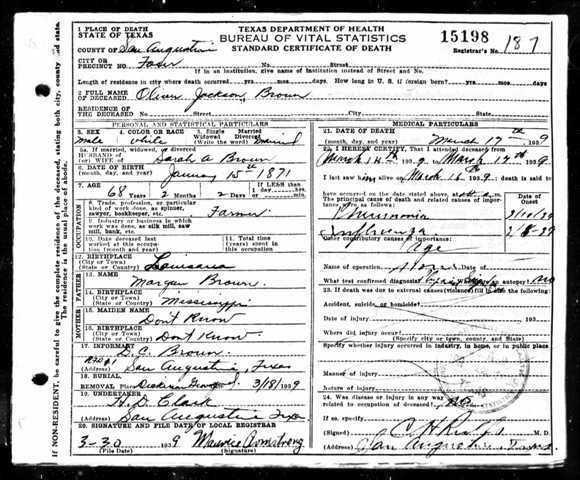 1 PLACE OF DEATH
STATE OF TEXAS
TEXAS DEPARTMENT OF HEALTH
BUREAU OF VITAL STATISTICS
STANDARD CERTIFICATE OF DEATH
15198
COUNTY OF San Augustine
Registrar's No. 187
CITY OR
PRECINCT NO. No. Street
If in an institution, give name of institution instead of Street and No.
Length of residence in city where death occurred yrs. mos days. How long in U. S. if foreign born? yrs. mos days
2 FULL NAME
OF DECEASED Oliver Jackson Brown
RESIDENCE OF
THE DECEASED No. Street City State
PERSONAL AND STATISTICAL PARTICULARS
3. SEX 4. COLOR OR RACE 5. Single Married
Widowed Divorced
male white married
6a. If married, widowed or divorced
HUSBAND OF
(or) WIFE OF Sarah A Brown
6. DATE OF BIRTH
(month, day, and year) January 15th 1871
7. AGE Years Months Days If LESS than
1 day
68 2 2 hrs. min.
OCCUPATION
8. Trade, profession, or particular
kind of work done, as spinner,
sawyer, bookkeeper, etc. Farmer
9. Industry or business in which
work was done, as silk mill, saw
mill, bank, etc.
10. Date deceased last
worked at this occupation
(month and year)
11. Total time
(Years) spent in
this occupation
12. BIRTHPLACE
(City or Town)
(State or Country) Louisiana
FATHER
13. NAME Morgan Brown
14. BIRTHPLACE
(City or Town)
(State or Country) Mississippi
MOTHER
15. MAIDEN NAME Don't Know
16. BIRTHPLACE
(City or Town)
(State or Country) Don't Know
17. INFORMANT D. C. Brown
(Address) San Augustine, Texas
18. BURIAL
REMOVAL Place Date 3/18/1939
19. UNDERTAKER H. D. Clark
(Address) San Augustine
20. SIGNATURE AND FILE DATE OF LOCAL REGISTRAR
3-30 1939 Maurice Armstrong
(File Date) (Signature)
MEDICAL PARTICULARS
21. DATE OF DEATH
(month, day, and year) March 17th 1939
22. I HEREBY CERTIFY,
March 14th 1939 March 17th 1939
I last saw him March 16th 1939; death is said to
have occurred on the date stated above,
The principal cause of death and related causes of importance
were as follows: Date of Onset
Pneumonia
Influenza
Other contributory causes of importance:
Age
Name of operation
What test confirmed diagnosis? autopsy? No
23. If death was due to external causes (violence) fill in the following:
Accident, suicide, or homicide?
Date of injury 193
Where did injury occur?
Specify whether injury occurred in industry, in home, or in public place
Manner of injury
Nature of injury
24. Was disease or injury in any way
related to occupation of deceased? No
If so, specify
(Signed) M D
(Address) San Augustine, Texas